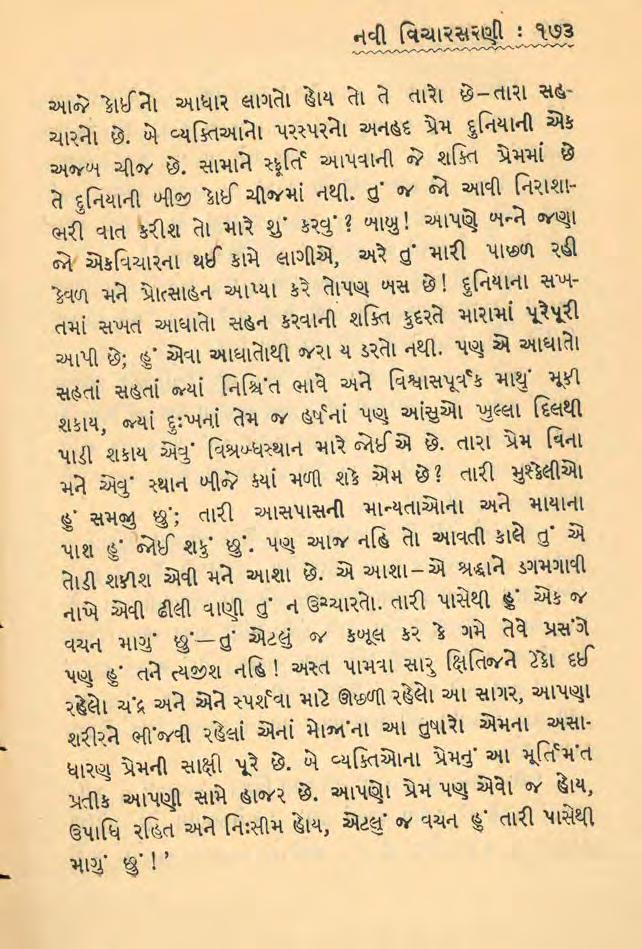 નવી વિચારસરણી : ૧૭૩
આજે કોઈનો આધાર લાગતો હોય તો તે તારો છે–તારા સહ-
ચારનો છે. બે વ્યક્તિઓનો પરસ્પરનો અનહદ પ્રેમ દુનિયાની એક
અજબ ચીજ છે. સામાને સ્ફૂર્તિ આપવાની જે શક્તિ પ્રેમમાં છે
તે દુનિયાની બીજી કોઈ ચીજમાં નથી. તું જ જો આવી નિરાશા-
ભરી વાત કરીશ તો મારે શું કરવું? બાબુ! આપણે બન્ને જણા
જો એકવિચારના થઈ કામે લાગીએ, અરે તું મારી પાછળ રહી
કેવળ મને પ્રોત્સાહન આપ્યા કરે તોપણ બસ છે! દુનિયાના સખ-
તમાં સખત આઘાતો સહન કરવાની શક્તિ કુદરતે મારામાં પૂરેપૂરી
આપી છે; હું એવા આઘાતોથી જરા ય ડરતો નથી. પણ એ આઘાતો
સહતાં સહતાં જ્યાં નિશ્ચિંત ભાવે અને વિશ્વાસપૂર્વક માથું મૂકી
શકાય, જ્યાં દુઃખનાં તેમ જ હર્ષનાં પણ આંસુઓ ખુલ્લા દિલથી
પાડી શકાય એવું વિશ્રબ્ધસ્થાન મારે જોઈએ છે. તારા પ્રેમ વિના
મને એવું સ્થાન બીજે ક્યાં મળી શકે એમ છે? તારી મુશ્કેલીઓ
હું સમજુ છું; તારી આસપાસની માન્યતાઓના અને માયાના
પાશ હું જોઈ શકું છું. પણ આજ નહિ તો આવતી કાલે તું એ
તોડી શકીશ એવી મને આશા છે. એ આશા–એ શ્રદ્ધાને ડગમગાવી
નાખે એવી ઢીલી વાણી તું ન ઉચ્ચારતો. તારી પાસેથી હું એક જ
વચન માગું છું–તું એટલું જ કબૂલ કર કે ગમે તેવે પ્રસંગે
પણ હું તને ત્યજીશ નહિ! અસ્ત પામવા સારુ ક્ષિતિજને ટેકો દઈ
રહેલો ચંદ્ર અને એને સ્પર્શવા માટે ઊછળી રહેલો આ સાગર, આપણા
શરીરને ભીંજવી રહેલાં એનાં મોજાંના આ તુષારો એમના અસા-
ધારણ પ્રેમની સાક્ષી પૂરે છે. બે વ્યક્તિઓના પ્રેમનું આ મૂર્તિમંત
પ્રતીક આપણી સામે હાજર છે. આપણો પ્રેમ પણ એવો જ હોય,
ઉપાધિ રહિત અને નિઃસીમ હોય, એટલું જ વચન હું તારી પાસેથી
માગું છું!’